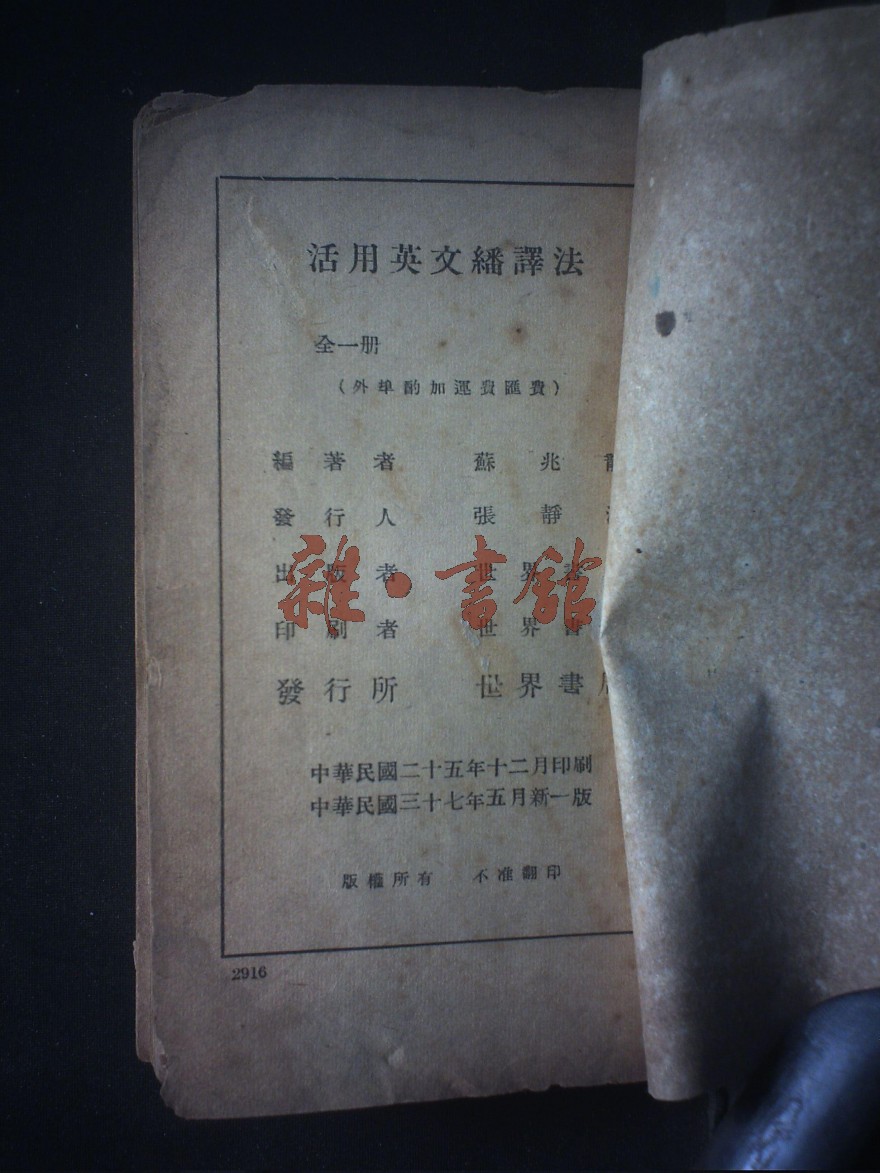 活用英文繙譯法
全一册
(外埠酌加運費匯費)
編著者 蘇兆
發行人 張靜
出版者 世界書
印刷者 世界書
發行所 世界書局
中華民國二十五年十二月印刷
中華民國三十七年五月新一版
版權所有 不准翻印
2916
雜·書館